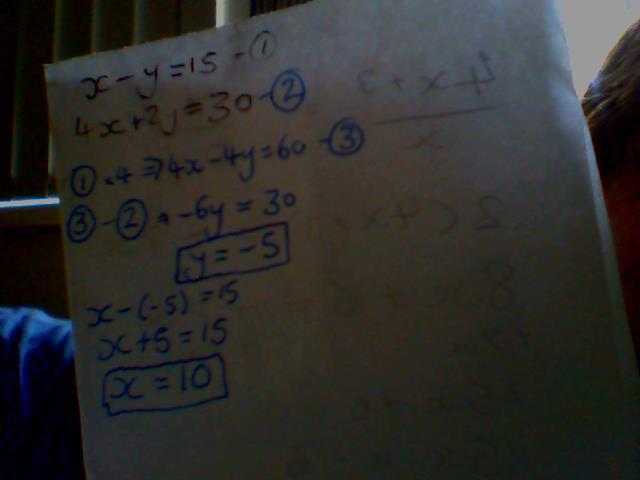 x - y = 15 - ①
4x + 2y = 30 - ②
① × 4 ⇒ 4x - 4y = 60 - ③
③ - ② ⇒ -6y = 30
y = -5
x - (-5) = 15
x + 5 = 15
x = 10